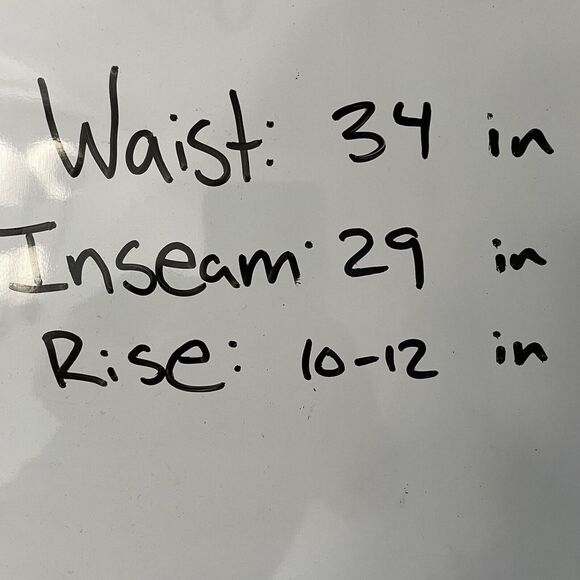 Waist: 34 in
Inseam: 29 in
Rise: 10-12 in